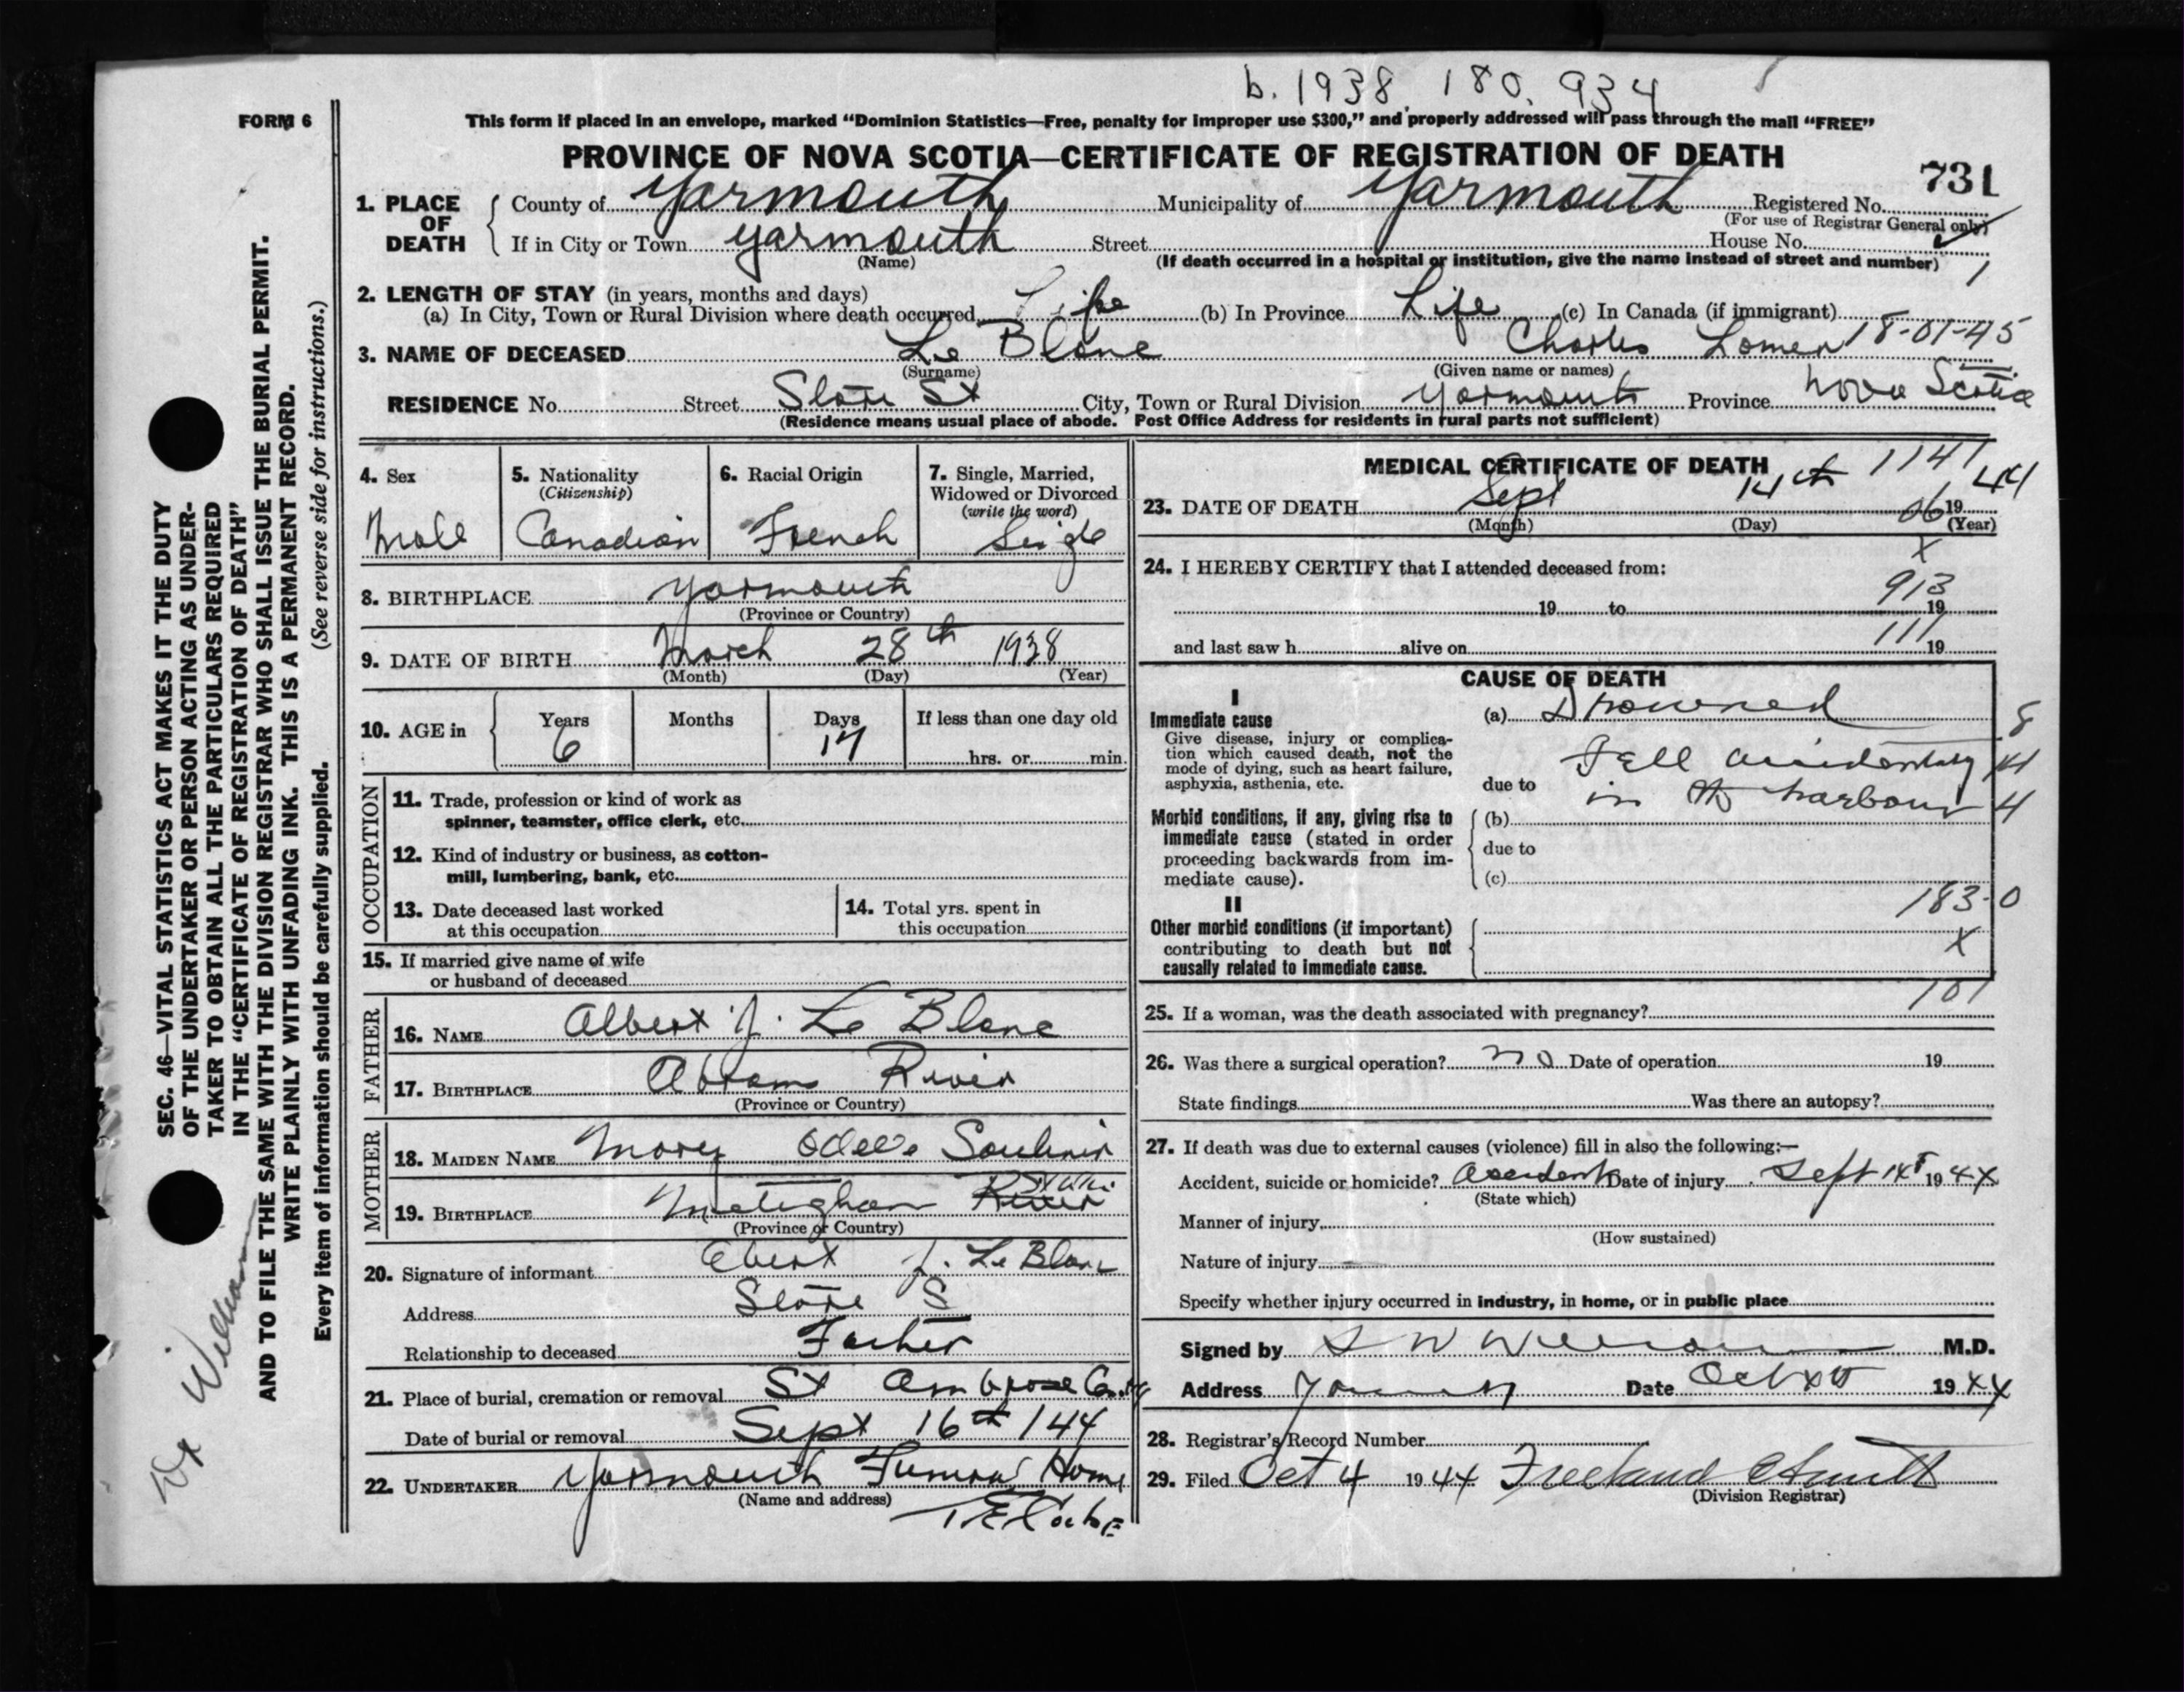 b. 1938 180,934
FORM 6
This form if placed in an envelope, marked “Dominion Statistics—Free, penalty for improper use $300,” and properly addressed will pass through the mail “FREE”
PROVINCE OF NOVA SCOTIA—CERTIFICATE OF REGISTRATION OF DEATH
731
1. PLACE OF DEATH
County of Yarmouth Municipality of Yarmouth Registered No.
(For use of Registrar General only)
If in City or Town Yarmouth Street House No.
(Name) (If death occurred in a hospital or institution, give the name instead of street and number) 1
2. LENGTH OF STAY (in years, months and days)
(a) In City, Town or Rural Division where death occurred Life (b) In Province Life (c) In Canada (if immigrant)
18-01-45
3. NAME OF DECEASED Le Blanc Charles
(Surname) (Given name or names)
RESIDENCE No. Street St City, Town or Rural Division Yarmouth Province Nova Scotia
(Residence means usual place of abode. Post Office Address for residents in rural parts not sufficient)
4. Sex Male
5. Nationality (Citizenship) Canadian
6. Racial Origin French
7. Single, Married, Widowed or Divorced (write the word) Single
8. BIRTHPLACE Yarmouth
(Province or Country)
9. DATE OF BIRTH March 28th 1938
(Month) (Day) (Year)
10. AGE in Years 6 Months Days 17 If less than one day old hrs. or min.
OCCUPATION
11. Trade, profession or kind of work as
spinner, teamster, office clerk, etc.
12. Kind of industry or business, as cotton-
mill, lumbering, bank, etc.
13. Date deceased last worked
at this occupation
14. Total yrs. spent in
this occupation
15. If married give name of wife
or husband of deceased
FATHER
16. NAME Albert J. Le Blanc
17. BIRTHPLACE Abrams River
(Province or Country)
MOTHER
18. MAIDEN NAME Mary Saulnier
19. BIRTHPLACE Meteghan River Station
(Province or Country)
20. Signature of informant J. Le Blanc
Address
Relationship to deceased Father
21. Place of burial, cremation or removal St Ambrose
Date of burial or removal Sept 16th/44
22. UNDERTAKER Yarmouth Funeral Home
(Name and address)
MEDICAL CERTIFICATE OF DEATH
1141
23. DATE OF DEATH Sept 14th 06 19 44
(Month) (Day) (Year)
X
24. I HEREBY CERTIFY that I attended deceased from:
913
19 to 19
111
and last saw h alive on 19
CAUSE OF DEATH
I
Immediate cause
Give disease, injury or complica-
tion which caused death, not the
mode of dying, such as heart failure,
asphyxia, asthenia, etc.
(a) Drowned
8
due to Fell accidentally
14
in the harbour
4
Morbid conditions, if any, giving rise to
immediate cause (stated in order
proceeding backwards from im-
mediate cause).
(b)
due to
(c)
183-0
II
Other morbid conditions (if important)
contributing to death but not
causally related to immediate cause.
X
101
25. If a woman, was the death associated with pregnancy?
26. Was there a surgical operation? no Date of operation 19
State findings Was there an autopsy?
27. If death was due to external causes (violence) fill in also the following:—
Accident, suicide or homicide? Accident Date of injury Sept 14 19 44
(State which)
Manner of injury
(How sustained)
Nature of injury
Specify whether injury occurred in industry, in home, or in public place
Signed by M.D.
Address Yarmouth Date Oct 19 44
28. Registrar’s Record Number
29. Filed Oct 4 19 44 Freeland
(Division Registrar)
SEC. 46—VITAL STATISTICS ACT MAKES IT THE DUTY
OF THE UNDERTAKER OR PERSON ACTING AS UNDER-
TAKER TO OBTAIN ALL THE PARTICULARS REQUIRED
IN THE “CERTIFICATE OF REGISTRATION OF DEATH”
AND TO FILE THE SAME WITH THE DIVISION REGISTRAR WHO SHALL ISSUE THE BURIAL PERMIT.
WRITE PLAINLY WITH UNFADING INK. THIS IS A PERMANENT RECORD.
Every item of information should be carefully supplied. (See reverse side for instructions.)
Dr